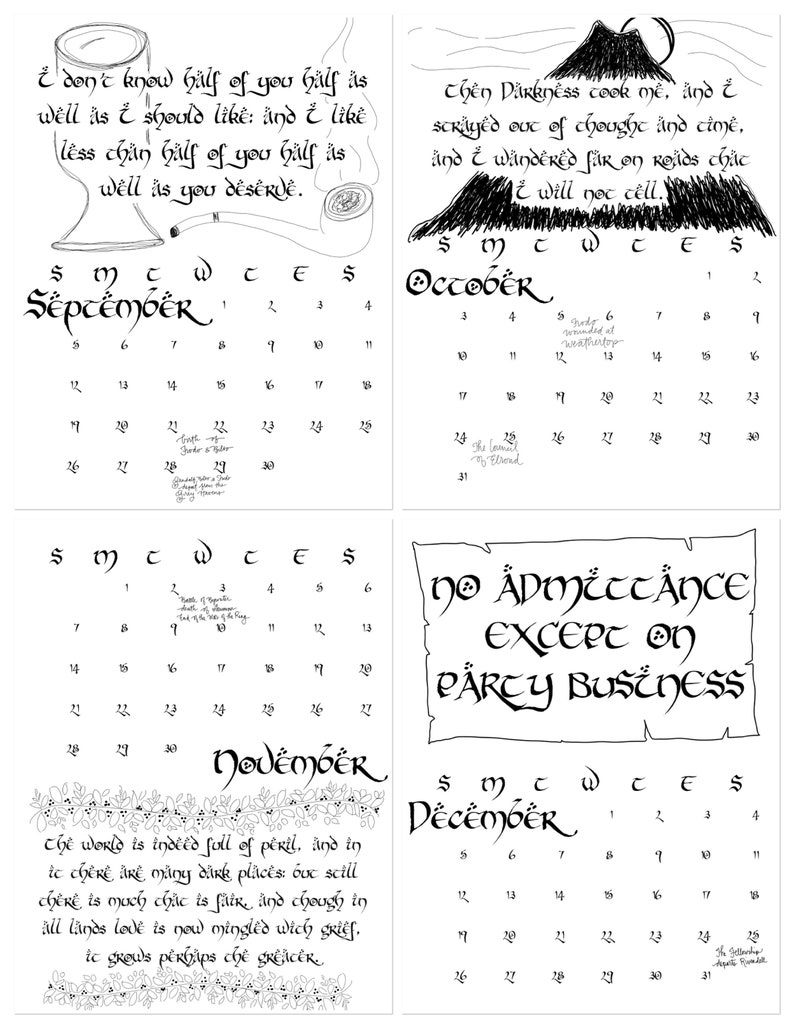 I don't know half of you half as
well as I should like: and I like
less than half of you half as
well as you deserve.
S M T W T F S
September 1 2 3 4
5 6 7 8 9 10 11
12 13 14 15 16 17 18
19 20 21 22 23 24 25
birth of
Frodo & Bilbo
26 27 28 29 30
Gandalf, Bilbo & Frodo
depart from the
Grey Havens
Then Darkness took me, and I
strayed out of thought and time,
and I wandered far on roads that
I will not tell.
S M T W T F S
October 1 2
3 4 5 6 7 8 9
Frodo
wounded at
Weathertop
10 11 12 13 14 15 16
17 18 19 20 21 22 23
24 25 26 27 28 29 30
The Council
of Elrond
31
S M T W T F S
1 2 3 4 5 6
Battle of Bywater
death of Saruman
End of the War of the Ring
7 8 9 10 11 12 13
14 15 16 17 18 19 20
21 22 23 24 25 26 27
28 29 30
November
The world is indeed full of peril, and in
it there are many dark places: but still
there is much that is fair, and though in
all lands love is now mingled with grief,
it grows perhaps the greater.
No Admittance
Except On
Party Business
S M T W T F S
December 1 2 3 4
5 6 7 8 9 10 11
12 13 14 15 16 17 18
19 20 21 22 23 24 25
The Fellowship
departs Rivendell
26 27 28 29 30 31